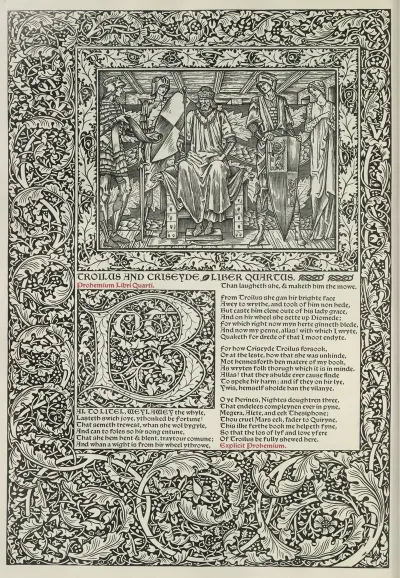 TROILUS AND CRISEYDE. LIBER QUARTUS.
Prohemium Libri Quarti.
BUT AL TO LITEL, WEYLAWEY the whyle,
Lasteth swich joye, ythonked be Fortune!
That semeth trewest, whan she wol bygyle,
And can to foles so hir song entune,
That she hem hent & blent, traytour comune;
And whan a wight is from hir wheel ythrowe,
Than laugheth she, & maketh him the mowe.
From Troilus she gan hir brighte face
Awey to wrythe, and took of him non hede,
But caste him clene oute of his lady grace,
And on hir wheel she sette up Diomede;
For which right now myn herte ginneth blede,
And now my penne, allas! with which I wryte,
Quaketh for drede of that I moot endyte.
For how Criseyde Troilus forsook,
Or at the leste, how that she was unkinde,
Mot hennesforth ben matere of my book,
As wryten folk thorugh which it is in minde.
Allas! that they shulde ever cause finde
To speke hir harm; and if they on hir lye,
Ywis, hemself sholde han the vilanye.
O ye Herines, Nightes doughtren three,
That endelees compleynen ever in pyne,
Megera, Alete, and eek Thesiphone;
Thou cruel Mars eek, fader to Quiryne,
This ilke ferthe book me helpeth fyne,
So that the los of lyf and love yfere
Of Troilus be fully shewed here.
Explicit Prohemium.